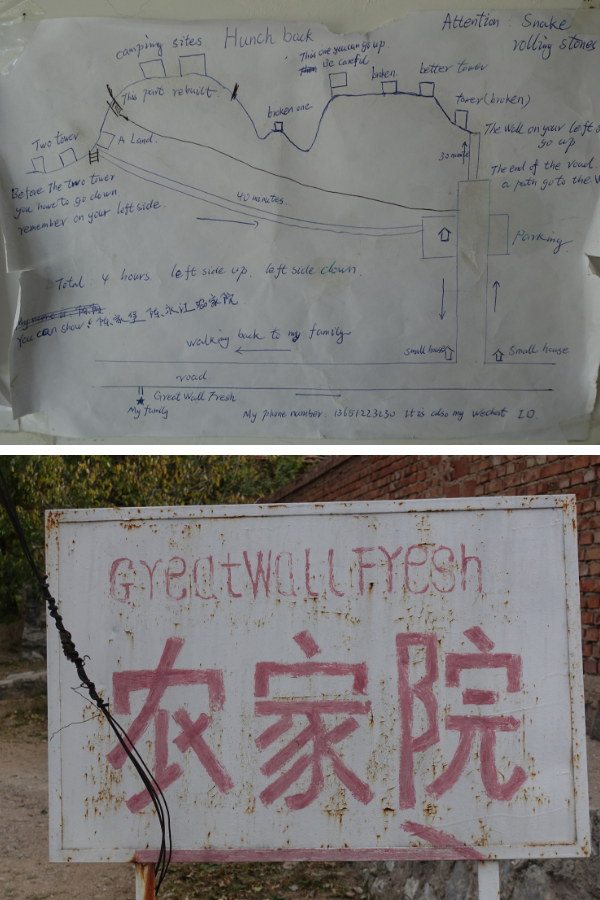 Attention: Snake
rolling stones
Hunch back
camping sites
This one you can go up.
Be careful
broken
better tower
tower(broken)
This part rebuilt.
broken one
The wall on your left
go up
30 minute
Two tower
A Land.
The end of the road.
a path go to the
Before the two tower
you have to go down
remember on your left side.
40 minutes.
Parking
Total 4 hours. left side up. left side clown.
You can show: 陈家堡 陈永江 农家院
walking back to my family
small house
Small house
road
Great Wall Fresh
My family
My phone number 13681223230 It is also my wechat ID
GreatWallFresh
农家院